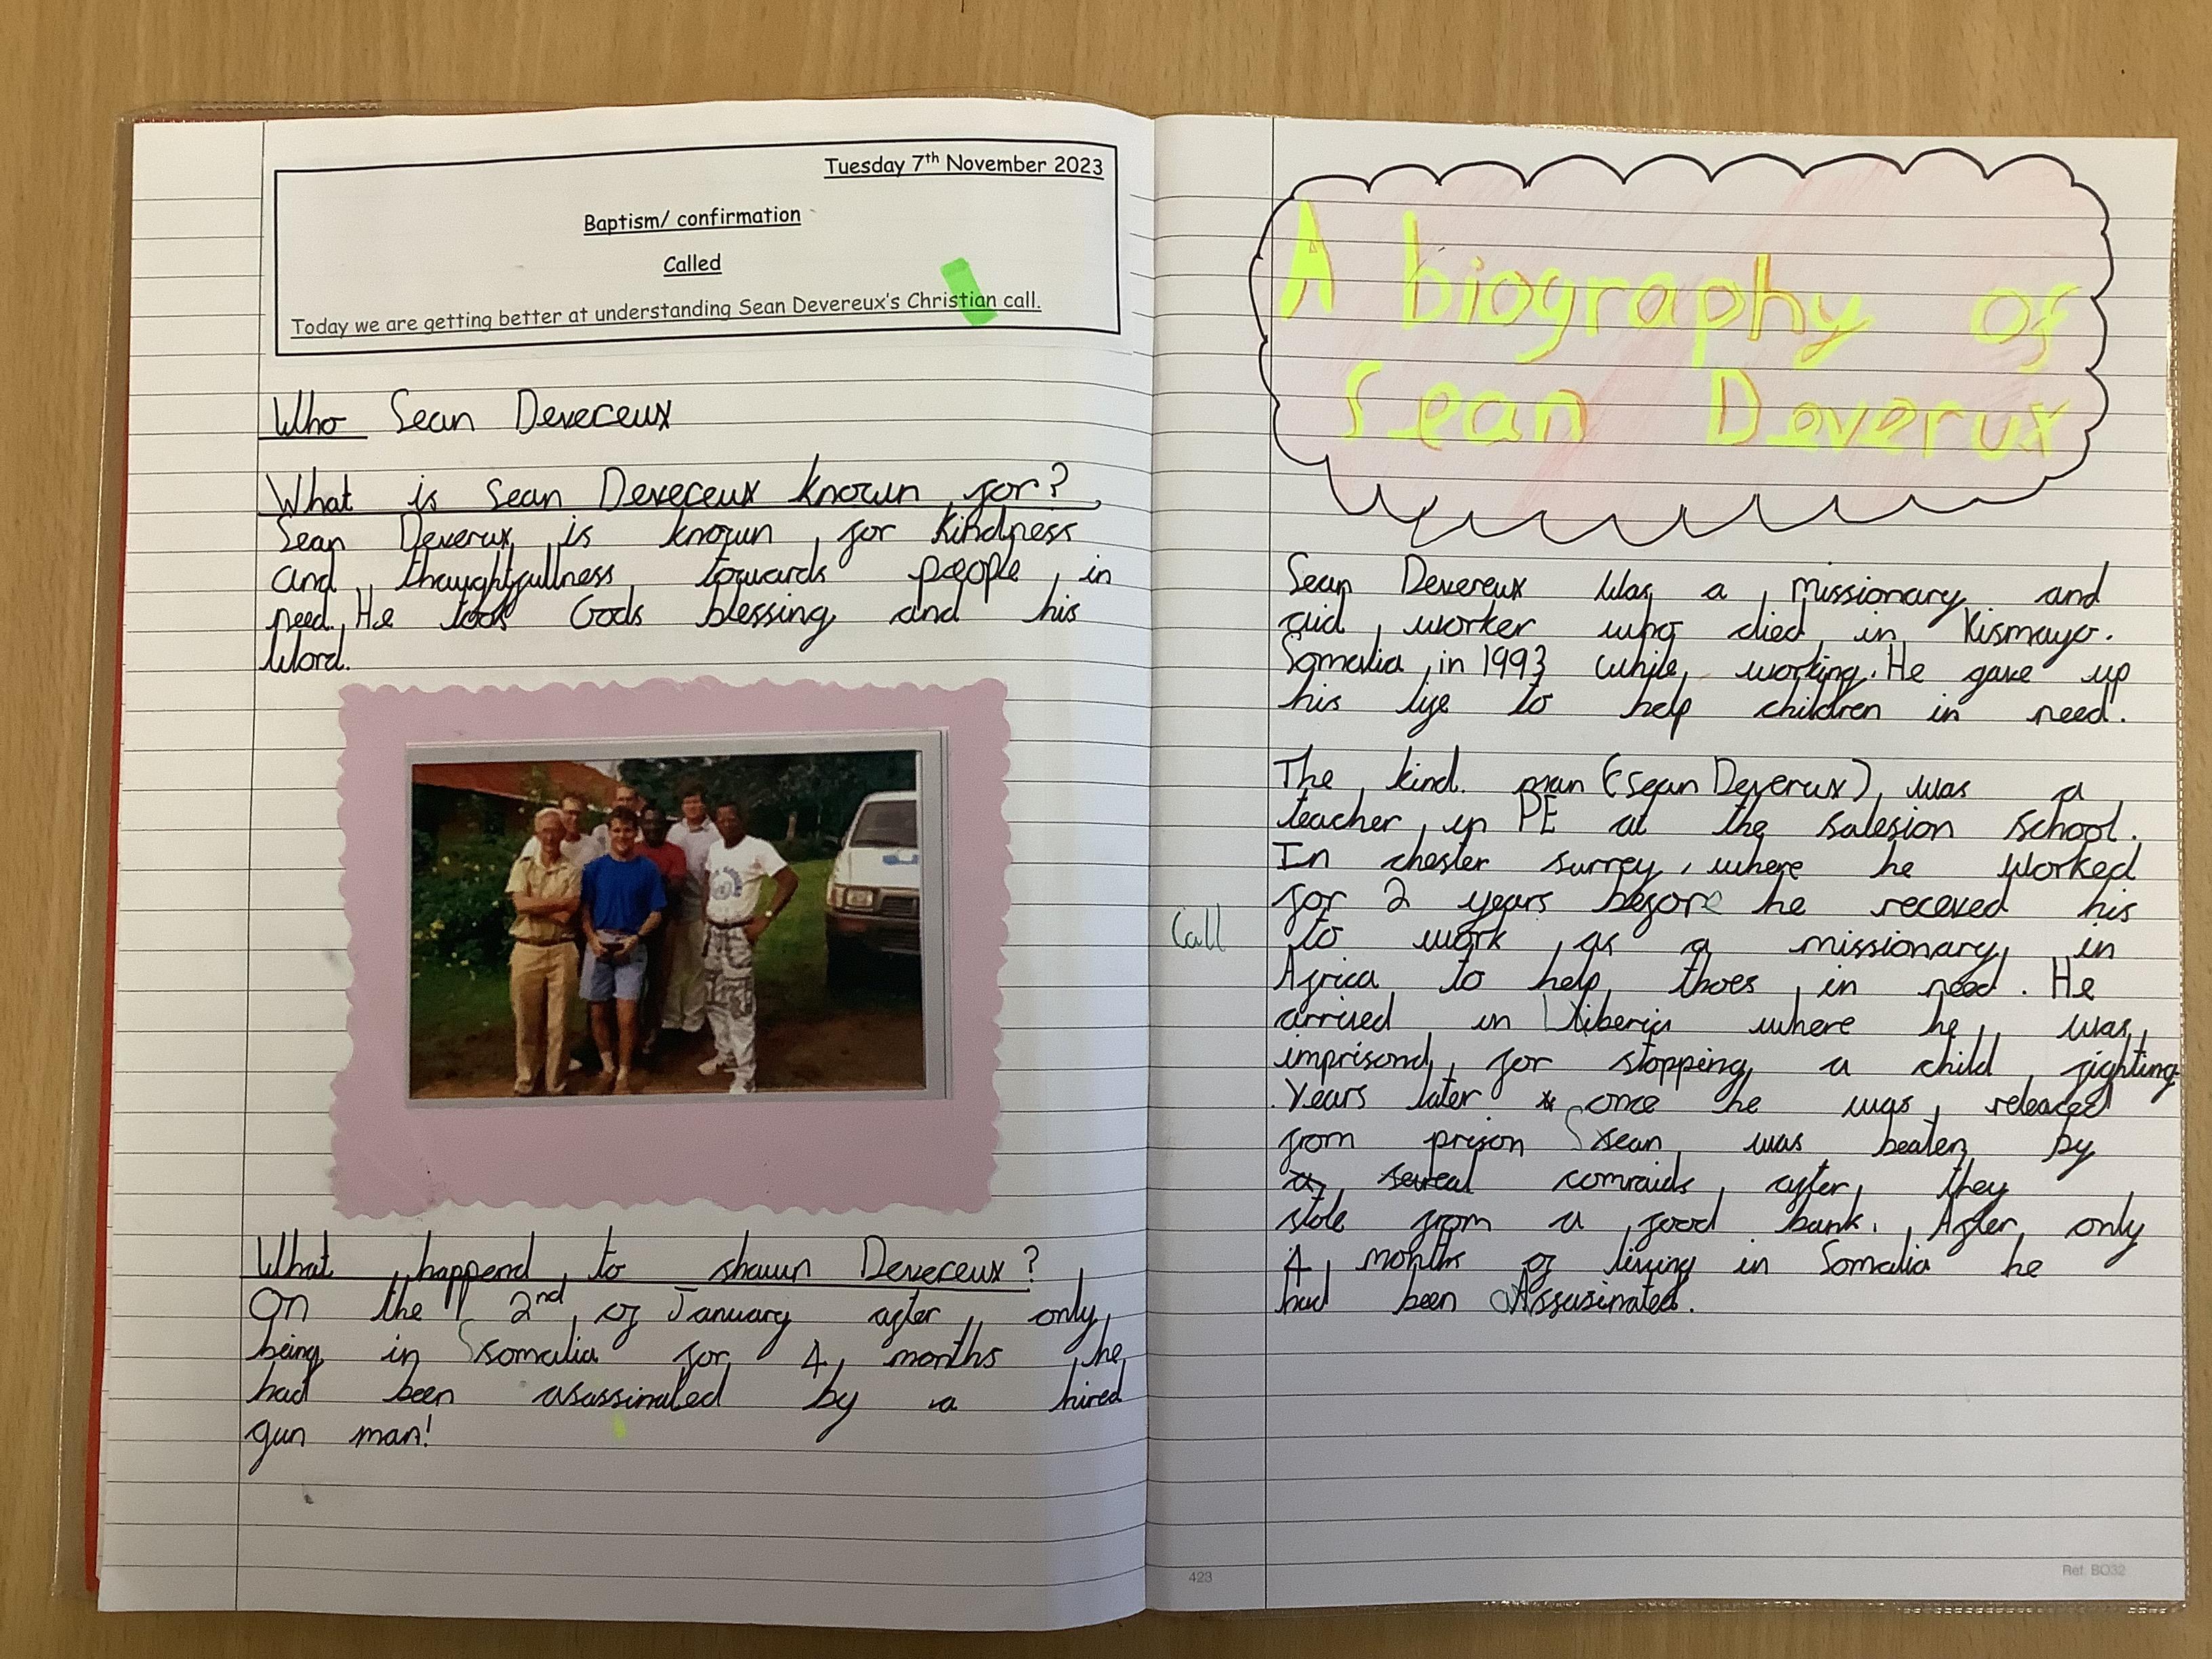 Tuesday 7th November 2023
Baptism/ confirmation
Called
Today we are getting better at understanding Sean Devereux's Christian call.
Who Sean Devereux
What is Sean Devereux known for?
Sean Deverux is known for kindness
and thoughtfullness towards people in
need. He took Gods blessing and his
word.
What happend to shaun Devereux?
On the 2nd of January after only
being in Somalia for 4 months he
had been asassinated by a hired
gun man!
A biography of
Sean Deverux
Sean Devereux was a missionary and
aid worker who died in Kismayo.
Somalia in 1993 while working. He gave up
his life to help children in need.
The kind man (Sean Deverux) was a
teacher in PE at the salesion school.
In chester surrey, where he worked
for 2 years before he receved his
Call
to work as a missionary in
Africa to help thoes in need. He
arrived in Liberia where he was
imprisond for stopping a child fighting
. Years later once he was released
from prison Sean was beaten by
several comraids after they
stole from a food bank. After only
4 months of living in Somalia he
had been assasinated.
423
Ref. BO32